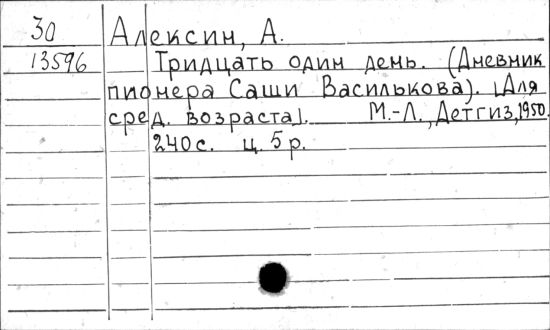 30 Алексин, А.
13596 Тридцать один день. (Дневник
пионера Саши Василькова). [Для
сред. возраста]. М.-Л., Детгиз, 1950.
240 с. ц. 5 р.